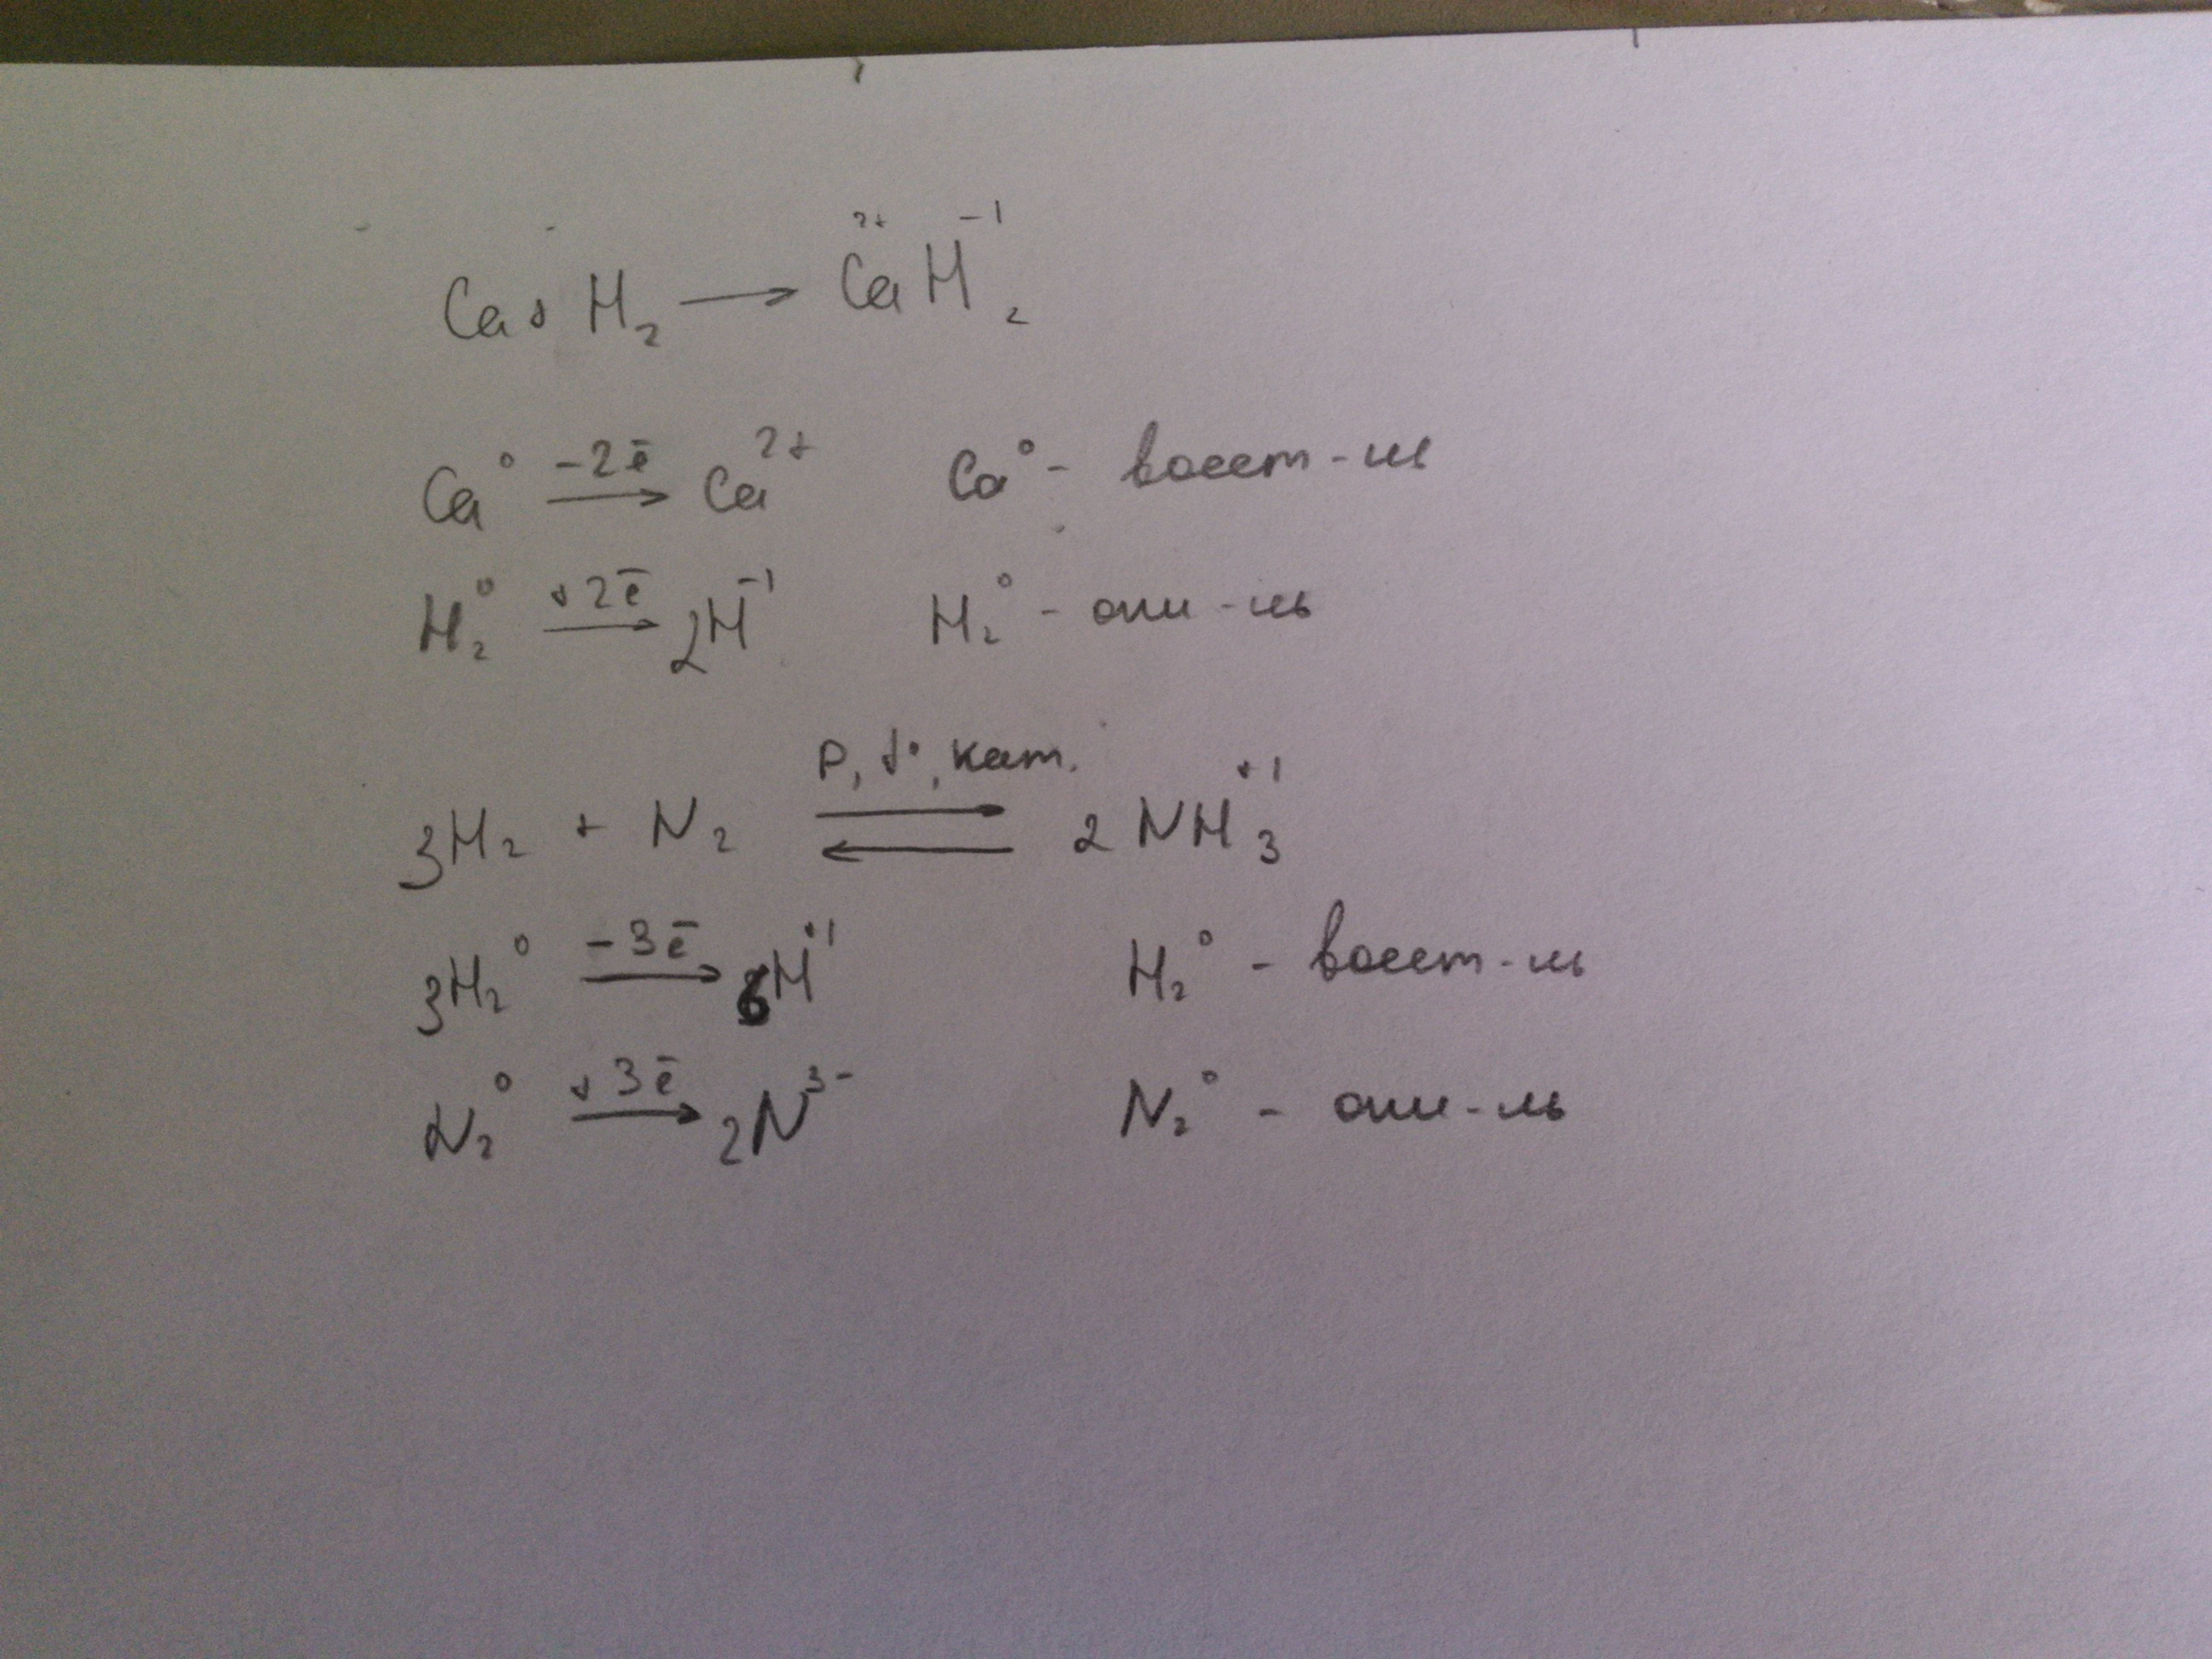 Ca + H₂ → Ca²⁺H⁻¹₂
Ca⁰ −2ē → Ca²⁺ Ca⁰ - восст-ль
H₂⁰ +2ē → 2H⁻¹ H₂⁰ - оки-ль
3H₂ + N₂ P, t°, кат. ⇄ 2NH⁺¹₃
3H₂⁰ −3ē → 6H⁺¹ H₂⁰ - восст-ль
N₂⁰ +3ē → 2N³⁻ N₂⁰ - оки-ль